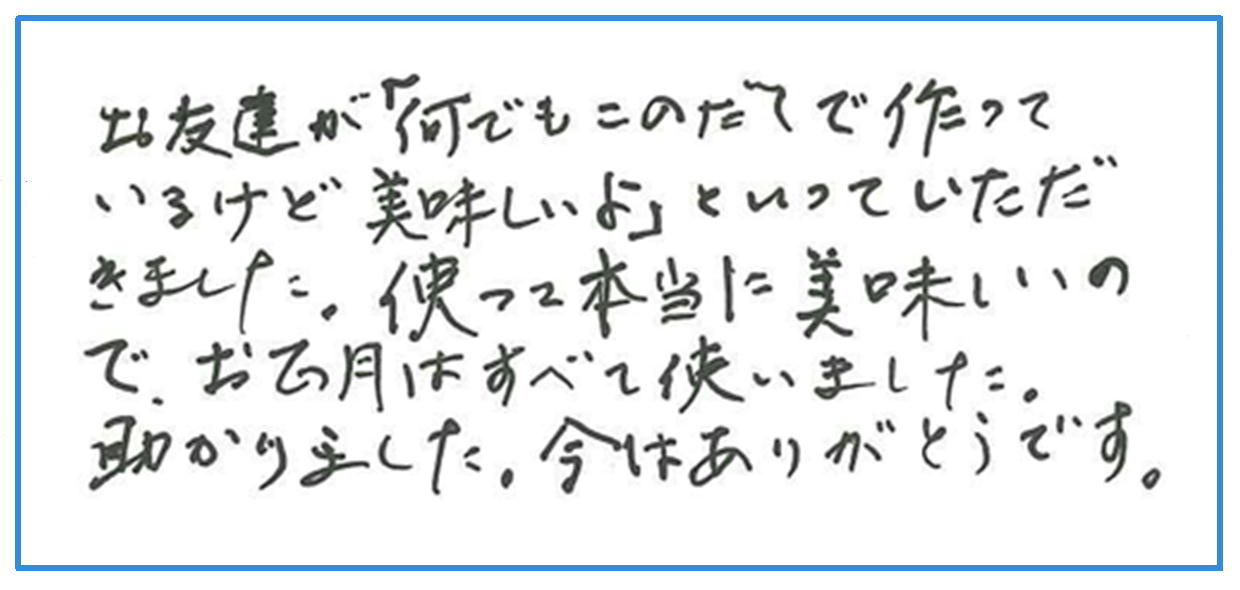 お友達が「何でもこのだしで作って
いるけど美味しいよ」といっていただ
きました。使って本当に美味しいの
で、お正月はすべて使いました。
助かりました。今はありがとうです。